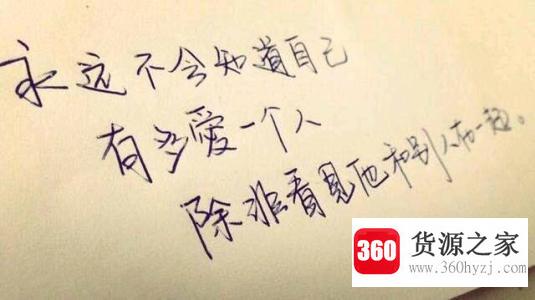 永远不会知道自己
有多爱一个人
除非看见他和别人在一起。
360
货源之家
www.360hyzj.com